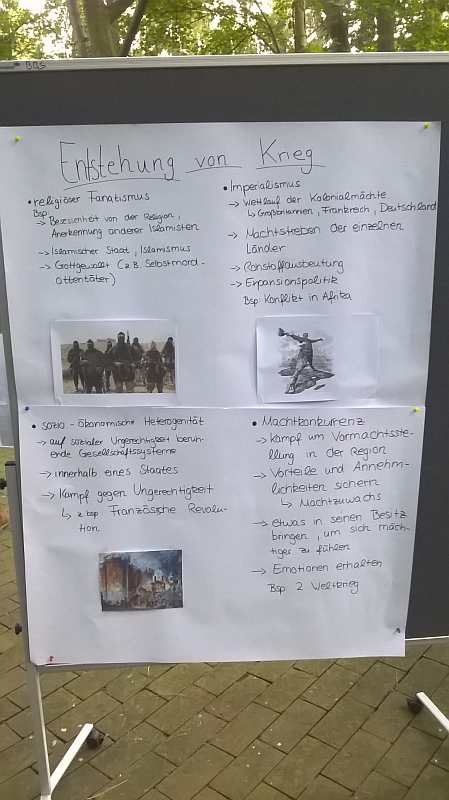 Entstehung von Krieg
• religiöser Fanatismus
Bsp:
→ Besessenheit von der Religion,
Anerkennung anderer Islamisten
→ Islamischer Staat, Islamismus
→ Gottgewollt (z.B. Selbstmord-
attentäter)
• Imperialismus
→ Wettlauf der Kolonialmächte
↳ Großbritannien, Frankreich, Deutschland
→ Machtstreben der einzelnen
Länder
→ Rohstoffausbeutung
→ Expansionspolitik
Bsp: Konflikt in Afrika
• sozio-ökonomische Heterogenität
→ auf sozialer Ungerechtigkeit beruh-
ende Gesellschaftssysteme
→ innerhalb eines Staates
→ Kampf gegen Ungerechtigkeit
↳ z.bsp. Französische Revolu-
tion
• Machtkonkurrenz
→ Kampf um Vormachtsste-
llung in der Region
→ Vorteile und Annehm-
lichkeiten sichern
↳ Machtzuwachs
→ etwas in seinen Besitz
bringen, um sich mäch-
tiger zu fühlen
→ Emotionen erhalten
Bsp 2 Weltkrieg